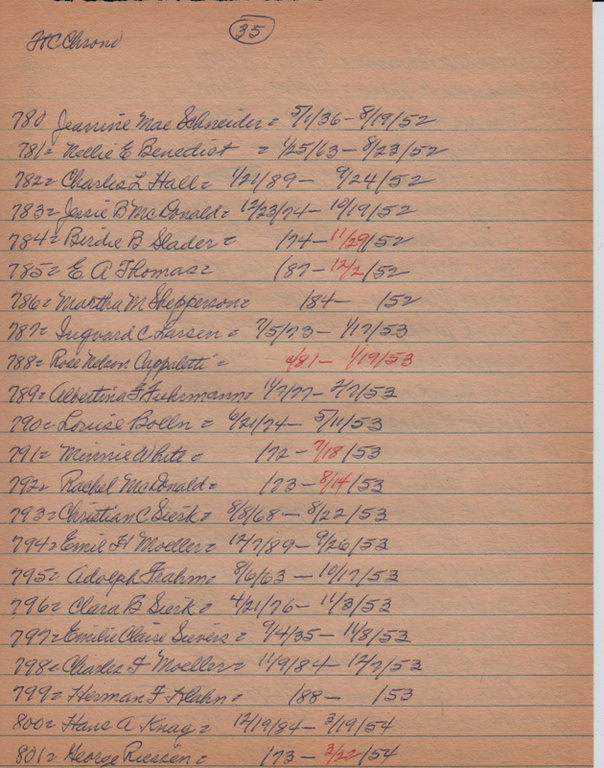 35
780 Jeanine Mae Schneider = 5/1/36 - 8/19/52
781 = Nellie E Benedict = 1/25/63 - 8/23/52
782 = Charles L Hall = 1/21/89 - 9/24/52
783 = Jessie B McDonald = 12/23/74 - 10/19/52
784 = Birdie B Slader = /74 - 11/29/52
785 = E A Thomas = /87 - 12/2/52
786 = Martha M Shepperson = /84 - /52
787 = Ingvard C Larsen = 7/5/73 - 1/17/53
788 = Rose Nelson Cappaletti = /81 - 1/19/53
789 = Albertina F Fuhrmann = 11/7/77 - 2/7/53
790 = Louise Bolln = 6/21/74 - 5/11/53
791 = Minnie White = /72 - 7/18/53
792 = Rachel McDonald = /73 - 8/14/53
793 = Christian C Sierk = 8/8/68 - 8/22/53
794 = Emil H Moeller = 12/7/89 - 9/26/53
795 = Adolph Frahm = 8/6/63 - 10/17/53
796 = Clara B Sierk = 4/21/76 - 11/3/53
797 = Emilie Claire Sievers = 9/4/35 - 11/8/53
798 = Charles F Moeller = 11/9/84 - 12/7/53
799 = Herman F Hahn = /88 - /53
800 = Hans A Knag = 12/19/84 - 3/19/54
801 = George Riessen = /73 - 3/22/54